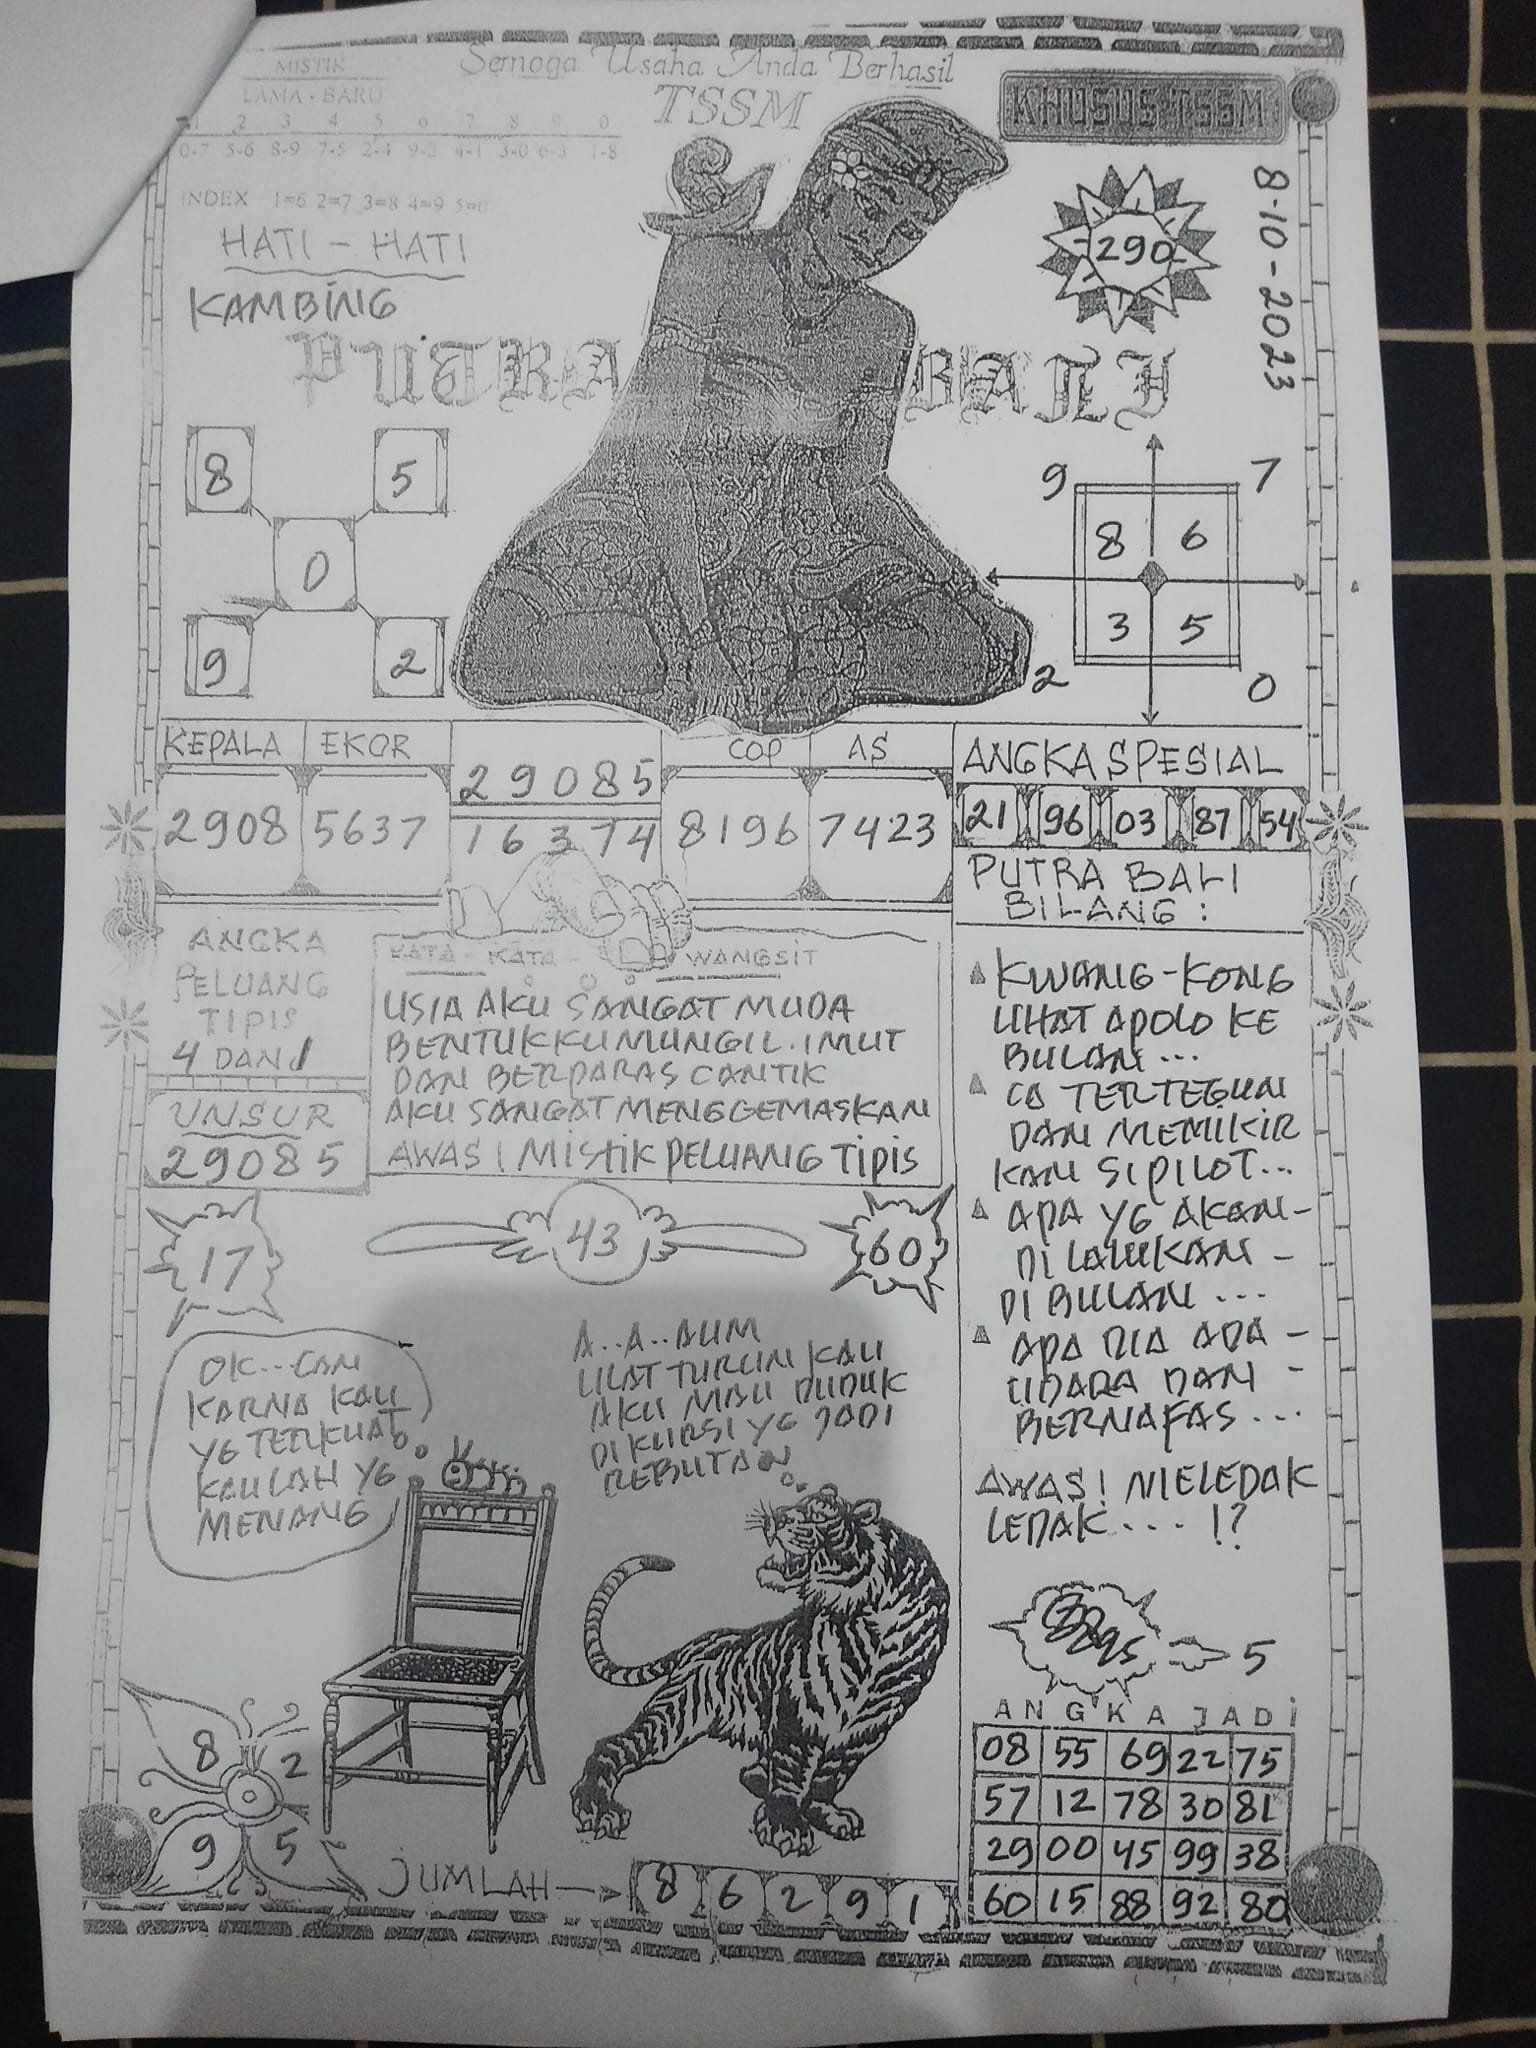 MISTIK
LAMA - BARU
1 2 3 4 5 6 7 8 9 0
0-7 5-6 8-9 7-5 2-4 9-2 4-1 3-0 6-3 1-8
INDEX 1=6 2=7 3=8 4=9 5=0
Semoga Usaha Anda Berhasil
TSSM
KHUSUS TSSM
8-10-2023
290
HATI - HATI
KAMBING
PUTRA BALI
8 5
0
9 2
9 7
8 6
3 5
2 0
KEPALA EKOR
2908 5637
29085
16374
COP AS
8196 7423
ANGKA SPESIAL
21 96 03 87 54
ANGKA
PELUANG
TIPIS
4 DAN 1
UNSUR
29085
KATA - KATA - WANGSIT
USIA AKU SANGAT MUDA
BENTUKKU MUNGIL. IMUT
DAN BERPARAS CANTIK
AKU SANGAT MENGGEMASKAN
AWAS! MISTIK PELUANG TIPIS
PUTRA BALI
BILANG :
KWANG-KONG
LIHAT APOLO KE
BULAN ...
CO TERTEGUN
DAN MEMIKIR
KAN SI PILOT...
APA YG AKAN-
DI LAKUKAN -
DI BULAN ...
APA DIA ADA -
UDARA DAN -
BERNAFAS ...
AWAS! MELEDAK
LEDAK .... !?
17 43 60
OK...CAN
KARNA KAU
YG TERKUAT
KAULAH YG
MENANG
A..A..AUM
ULAT TURUN KAU
AKU MAU DUDUK
DI KURSI YG JADI
REBUTAN
5
8 2
9 5
JUMLAH → 8 6 2 9 1
ANGKA JADI
08 55 69 22 75
57 12 78 30 81
29 00 45 99 38
60 15 88 92 80